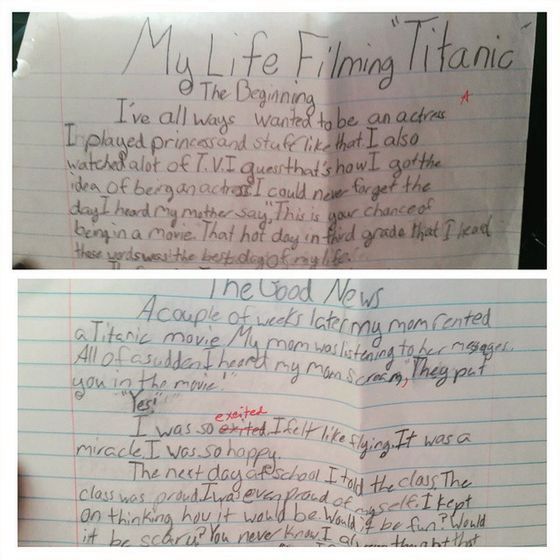 My Life Filming "Titanic"
The Beginning
A
I've all ways wanted to be an actress
I played princess and stuff like that. I also
watched alot of T.V. I guess that's how I got the
idea of being an actress I could never forget the
day I heard my mother say, "This is your chance of
being in a movie. That hot day in third grade that I heard
these words was the best day of my life.
The Good News
A couple of weeks later my mom rented
a Titanic movie. My mom was listening to her messages.
All of a sudden I heard my mom scream, "They put
you in the movie!"
"Yes!"
excited
I was so exited. I felt like flying. It was a
miracle. I was so happy.
The next day at school I told the class The
class was proud. I was even proud of myself. I kept
on thinking how it would be. Would it be fun? Would
it be scary? You never know. I always thought that